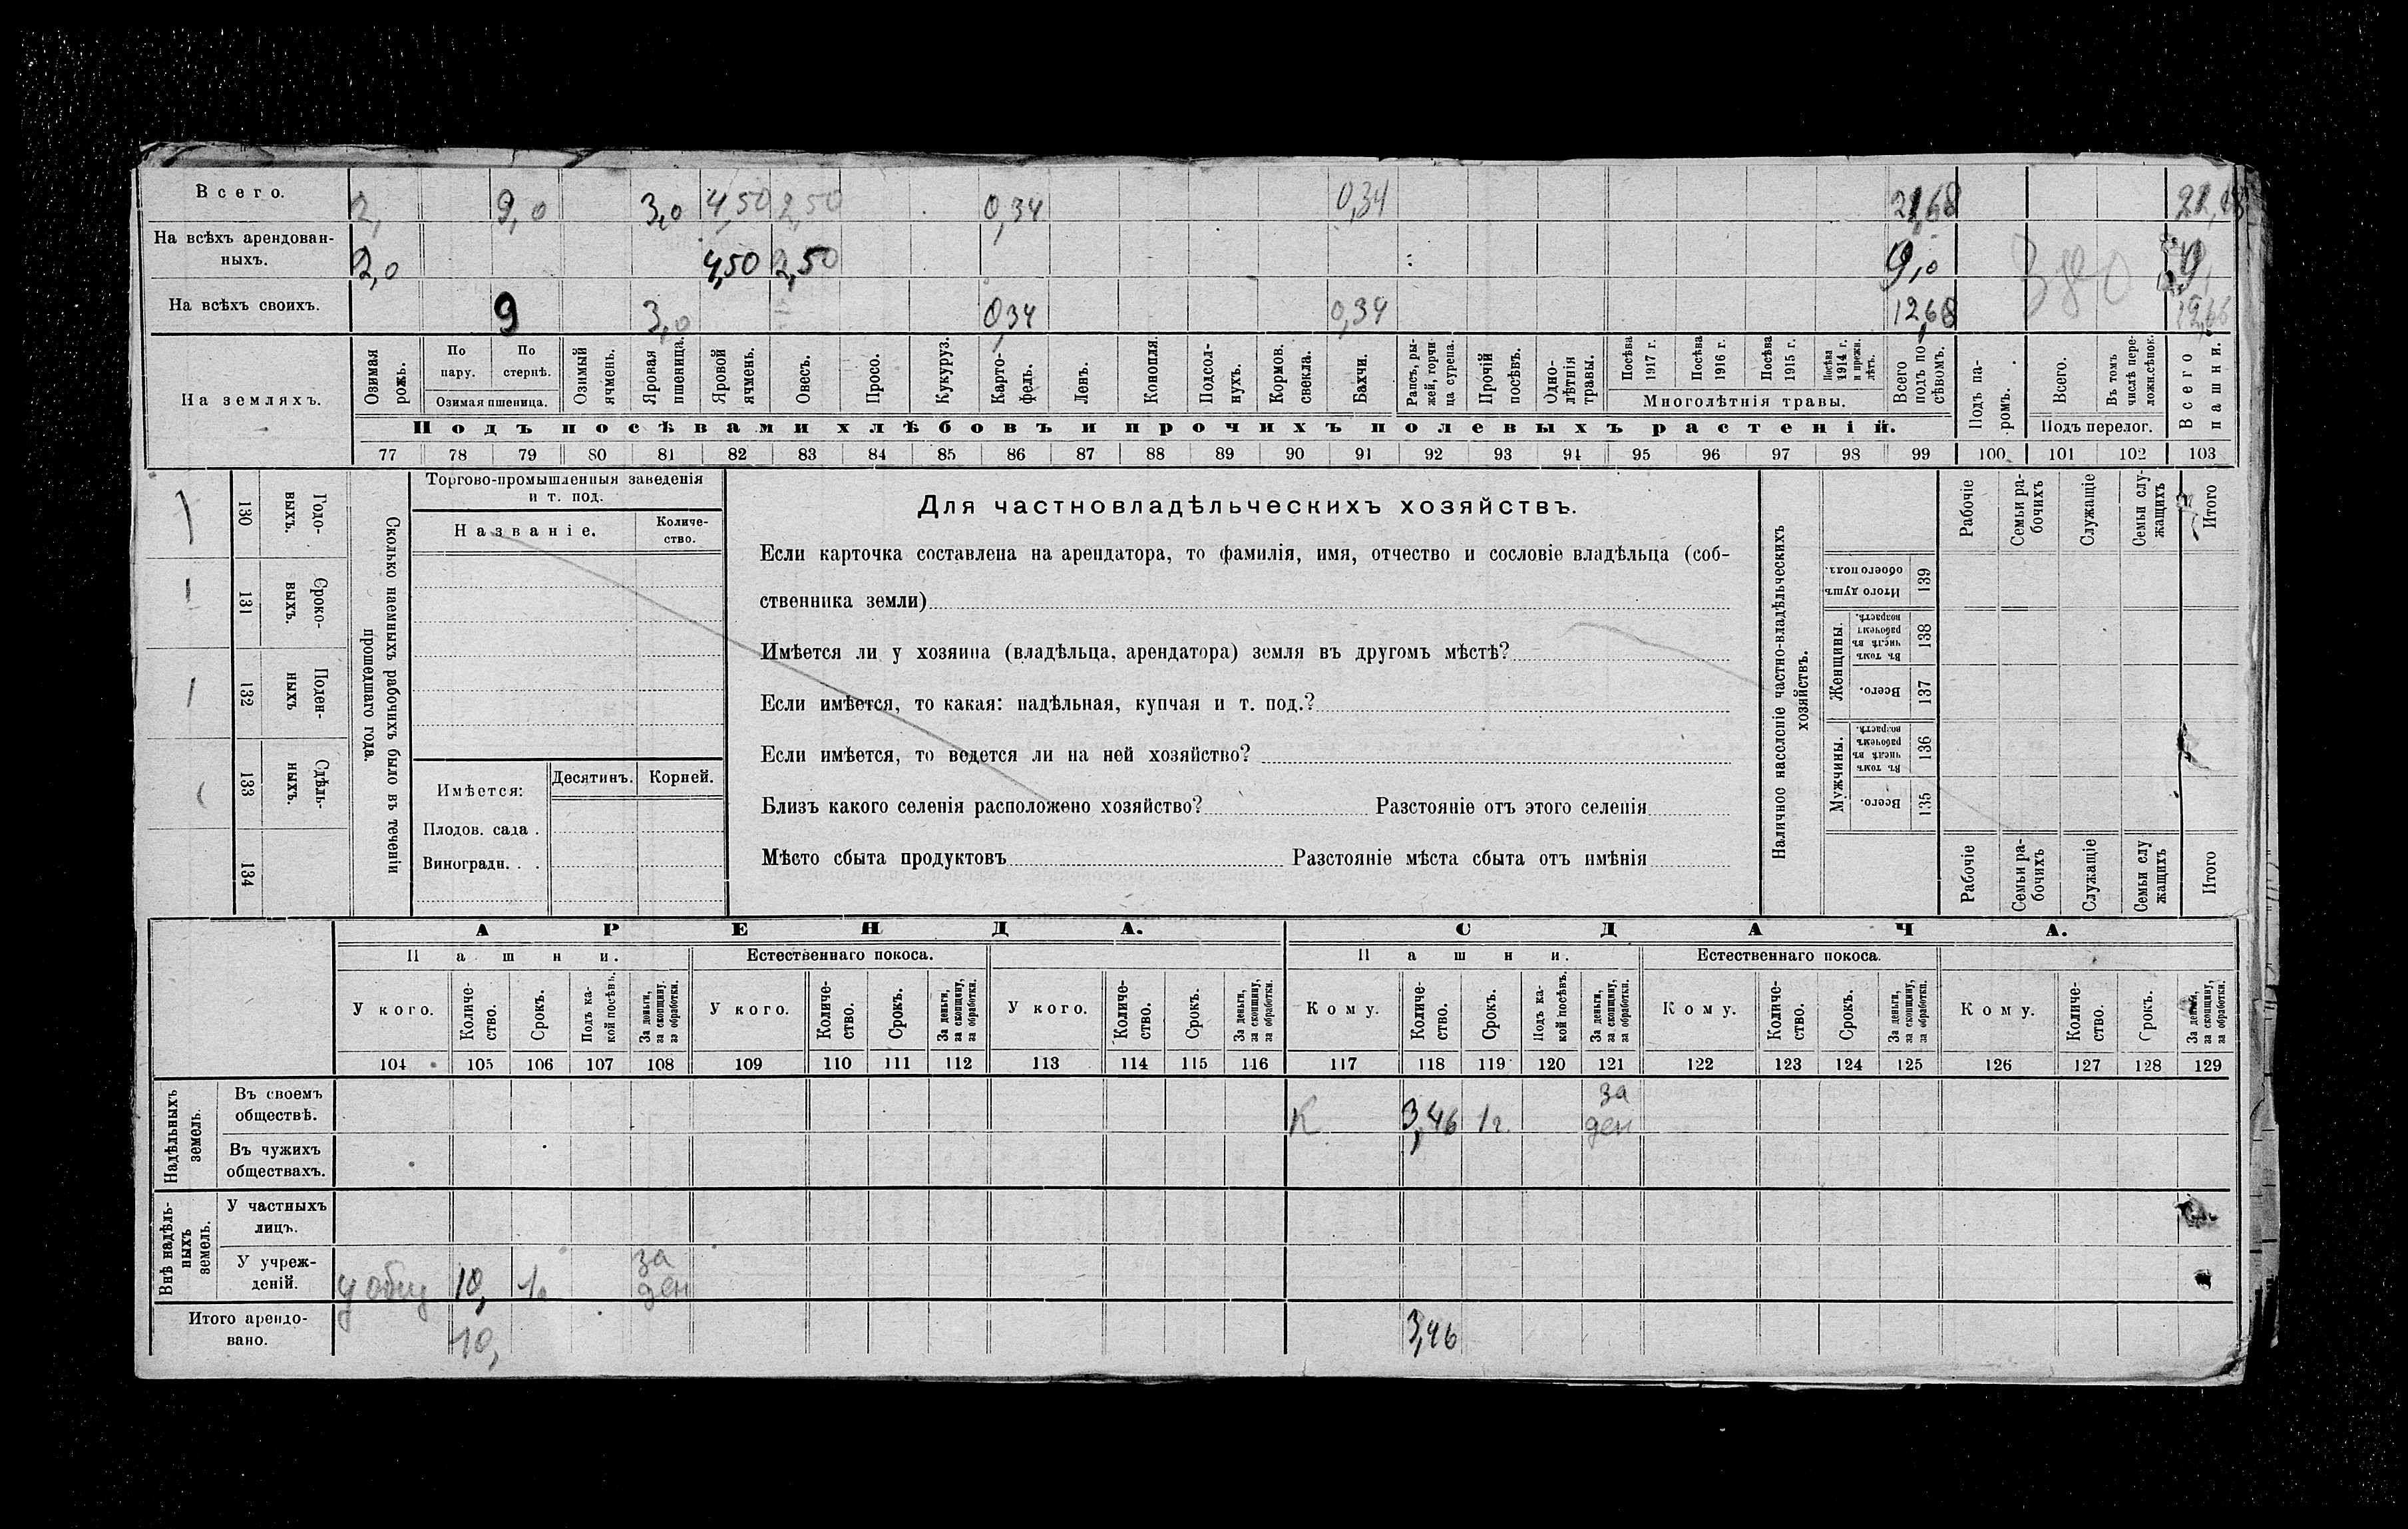 Всего. 2, 9,0 3,0 4,50 2,50 0,34 0,34 21,68
На всѣхъ арендован-
ныхъ. 2,0 4,50 2,50 9,0
На всѣхъ своихъ. 9 3,0 0,34 0,34 12,68
На земляхъ.
Озимая рожь.
По пару.
По стернѣ.
Озимая пшеница.
Озимый ячмень.
Яровая пшеница.
Яровой ячмень.
Овесъ.
Просо.
Кукуруз.
Карто-
фель.
Ленъ.
Конопля.
Подсол-
нухъ.
Кормов.
свекла.
Бахчи.
Рапсъ, ры-
жей, горчи
ца сурепа.
Прочій
посѣвъ.
Одно-
лѣтнія
травы.
Посѣва
1917 г.
Посѣва
1916 г.
Посѣва
1915 г.
Посѣва
1914 г.
и прежн.
лѣтъ.
Многолѣтнія травы.
Всего
подъ по
сѣвомъ.
Подъ па-
ромъ.
Всего.
Въ томъ
числѣ пере-
ложн.сѣнок.
Подъ перелог.
Всего
пашни.
Подъ посѣвами хлѣбовъ и прочихъ полевыхъ растеній.
77 78 79 80 81 82 83 84 85 86 87 88 89 90 91 92 93 94 95 96 97 98 99 100 101 102 103
1 130 Годо-
выхъ.
1 131 Сроко-
выхъ.
1 132 Поден-
ныхъ
133 Сдѣль-
ныхъ.
134
Сколько наемныхъ рабочихъ было въ теченіи
прошедшаго года.
Торгово-промышленныя заведенія
и т. под.
Названіе.
Количе-
ство.
Имѣется:
Десятинъ. Корней.
Плодов. сада .
Виноградн. . .
Для частновладѣльческихъ хозяйствъ.
Если карточка составлена на арендатора, то фамилія, имя, отчество и сословіе владѣльца (соб-
ственника земли)
Имѣется ли у хозяина (владѣльца, арендатора) земля въ другомъ мѣстѣ?
Если имѣется, то какая: надѣльная, купчая и т. под.?
Если имѣется, то ведется ли на ней хозяйство?
Близъ какого селенія расположено хозяйство? Разстояніе отъ этого селенія
Мѣсто сбыта продуктовъ Разстояніе мѣста сбыта отъ имѣнія
Наличное населеніе частно-владѣльческихъ
хозяйствъ.
Рабочіе
Семьи ра-
бочихъ
Служащіе
Семьи слу-
жащихъ
Итого
Итого душъ
обоего пола.
139
Женщины.
Въ томъ
числѣ въ
рабочемъ
возрастѣ.
138
Всего.
137
Мужчины.
Въ томъ
числѣ въ
рабочемъ
возрастѣ.
136
Всего.
135
Рабочіе
Семьи ра-
бочихъ
Служащіе
Семьи слу
жащихъ
Итого
АРЕНДА. СДАЧА.
Пашни. Естественнаго покоса. Пашни. Естественнаго покоса.
У кого.
Количе-
ство.
Срокъ.
Подъ ка-
кой посѣвъ.
За деньги,
за скопщину,
за обработки.
У кого.
Количе-
ство.
Срокъ.
За деньги,
за скопщину,
за обработки.
У кого.
Количе-
ство.
Срокъ.
За деньги,
за скопщину,
за обработки.
Кому.
Количе-
ство.
Срокъ.
Подъ ка-
кой посѣвъ.
За деньги,
за скопщину,
за обработки.
Кому.
Количе-
ство.
Срокъ.
За деньги,
за скопщину,
за обработки.
Кому.
Количе-
ство.
Срокъ.
За деньги,
за скопщину,
за обработки.
104 105 106 107 108 109 110 111 112 113 114 115 116 117 118 119 120 121 122 123 124 125 126 127 128 129
Надѣльныхъ
земель.
Въ своемъ
обществѣ. К 3,46 1г. за
ден
Въ чужихъ
обществахъ.
Внѣ надѣль-
ныхъ
земель.
У частныхъ
лицъ.
У учреж-
деній. у общ 10, 1г за
ден
Итого арендо-
вано. 10, 3,46